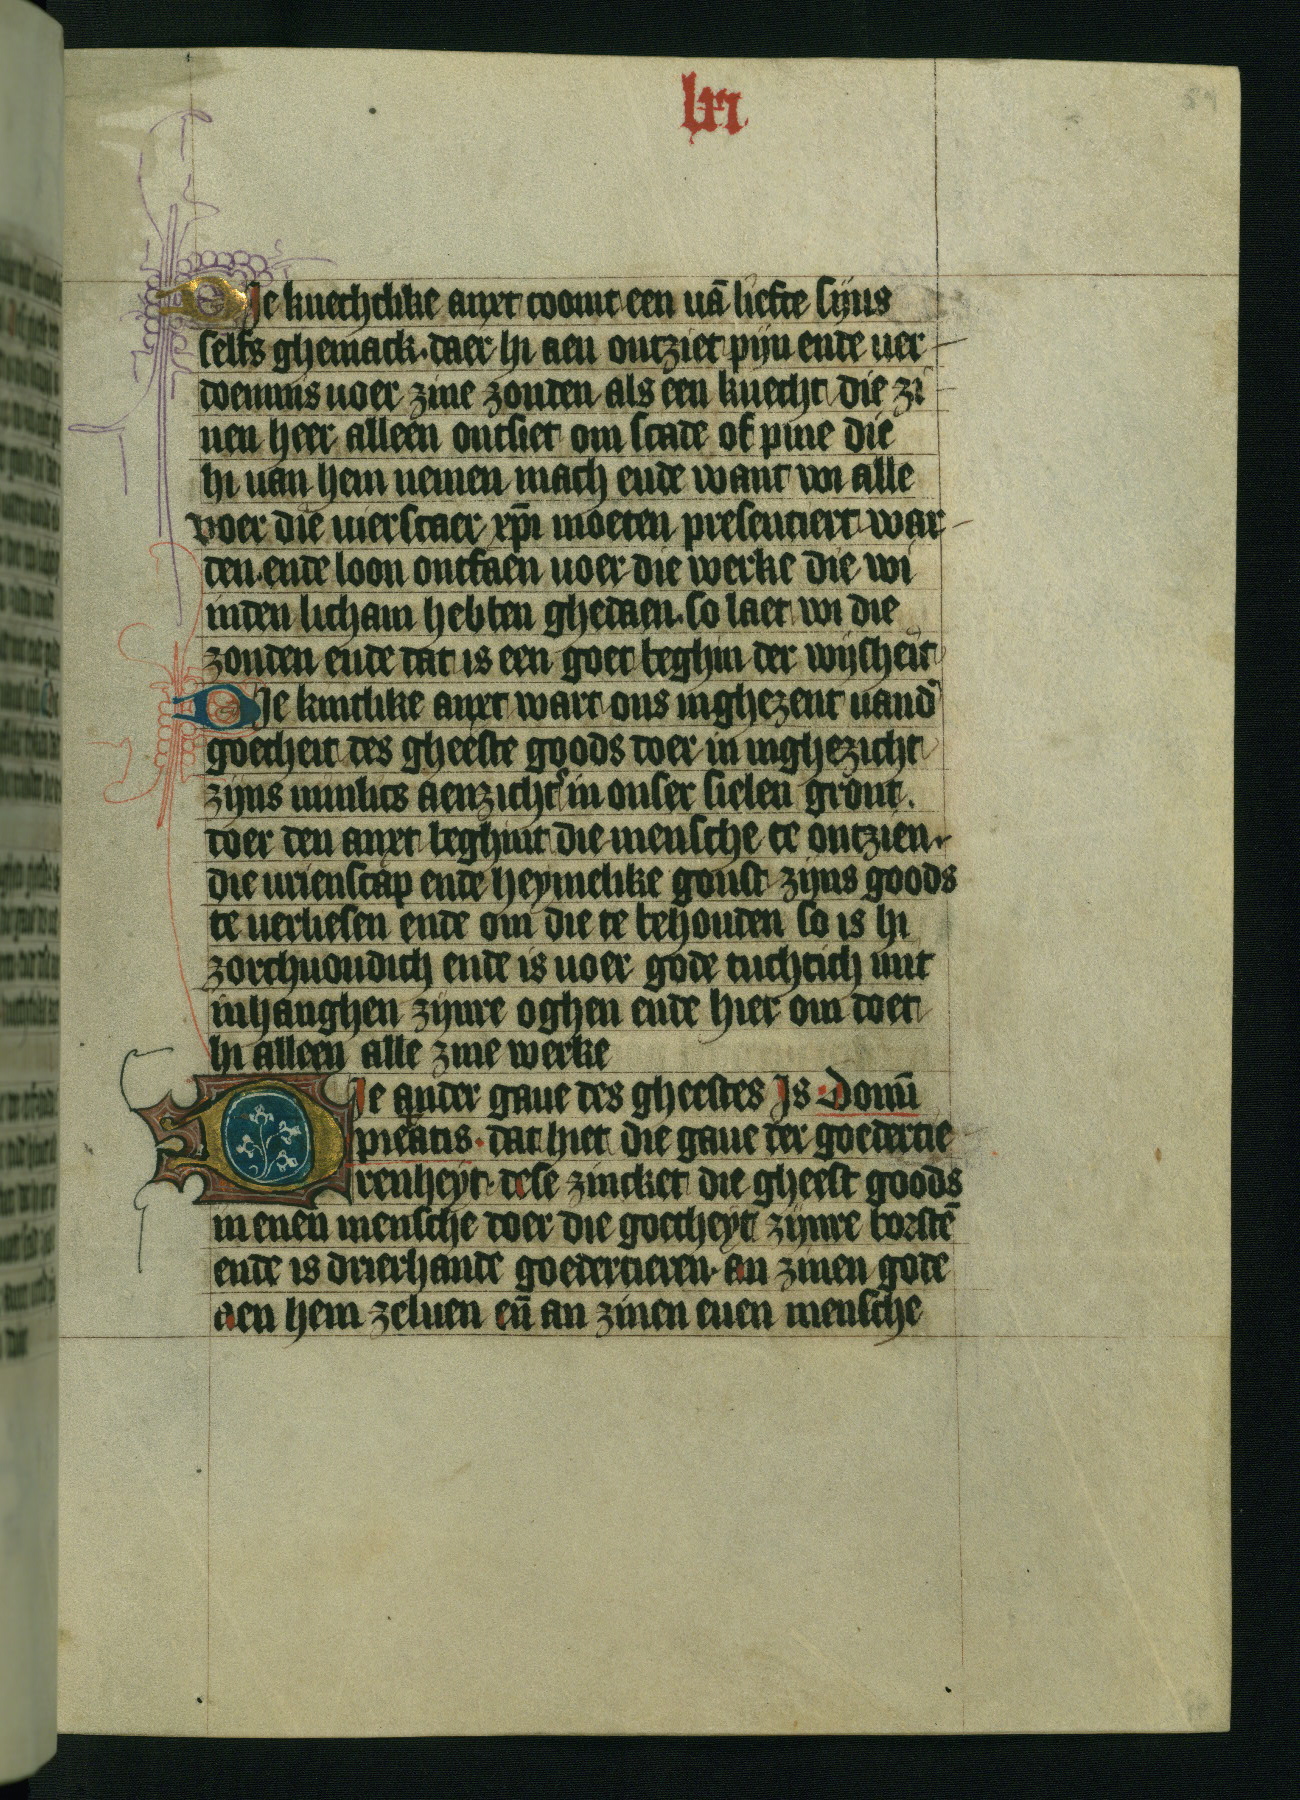 lxi
DIe knechtlike anxt coomt een uā liefte sijns
selfs ghemack. daer hi aen ontziet pijn ende uer
doemnis uoer zine zonden als een knecht die zi
nen heer alleen ontsiet om scade of pine die
hi uan hem nemen mach ende want wi alle
voer die uierscaer xp̄i moeten presentiert war
den. ende loon ontfaen uoer die werke die wi
inden licham hebben ghedaen. so laet wi die
zonden ende dat is een goet beghin der wijsheit
DIe kintlike anxt wart ons inghezent uand̄
goetheit des gheeste goods doer in inghezicht
zijns minlics aenzichts in onser sielen gront.
doer den anxt beghint die mensche te ontzien.
die urienscap ende heymelike gonst zijns goods
te uerliesen ende om die te behouden so is hi
zorchuoudich ende is uoer gode tuchtich mit
inhanghen zijnre oghen ende hier om doet
hi alleen alle zine werke
DIe ander gaue des gheestes Is. Donū
pietatis. dat hiet die gaue der goedertie
renheyt. dese zincket die gheest goods
in enen mensche doer die goetheyt zijnre borstē
ende is drierhande goedertieren. an zinen gode
aen hem zeluen en̄ an zinen euen mensche